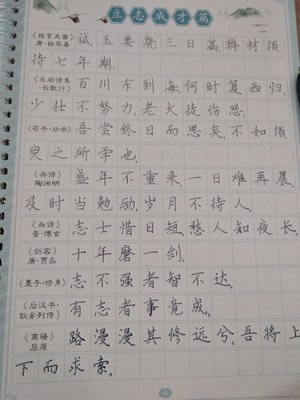 立志成才篇
《放言五首》 唐·白居易 试玉要烧三日满,辨材须
待七年期.
《乐府诗集·长歌行》 百川东到海,何时复西归,
少壮不努力,老大徒伤悲.
《荀子·劝学》 吾尝终日而思矣,不如须
臾之所学也.
《杂诗》 陶渊明 盛年不重来,一日难再晨
及时当勉励,岁月不待人.
《杂诗》 晋·傅玄 志士惜日短,愁人知夜长.
《剑客》 唐·贾岛 十年磨一剑.
《墨子·修身》 志不强者智不达.
《后汉书·耿弇列传》 有志者事竟成.
《离骚》 屈原 路漫漫其修远兮,吾将上
下而求索.